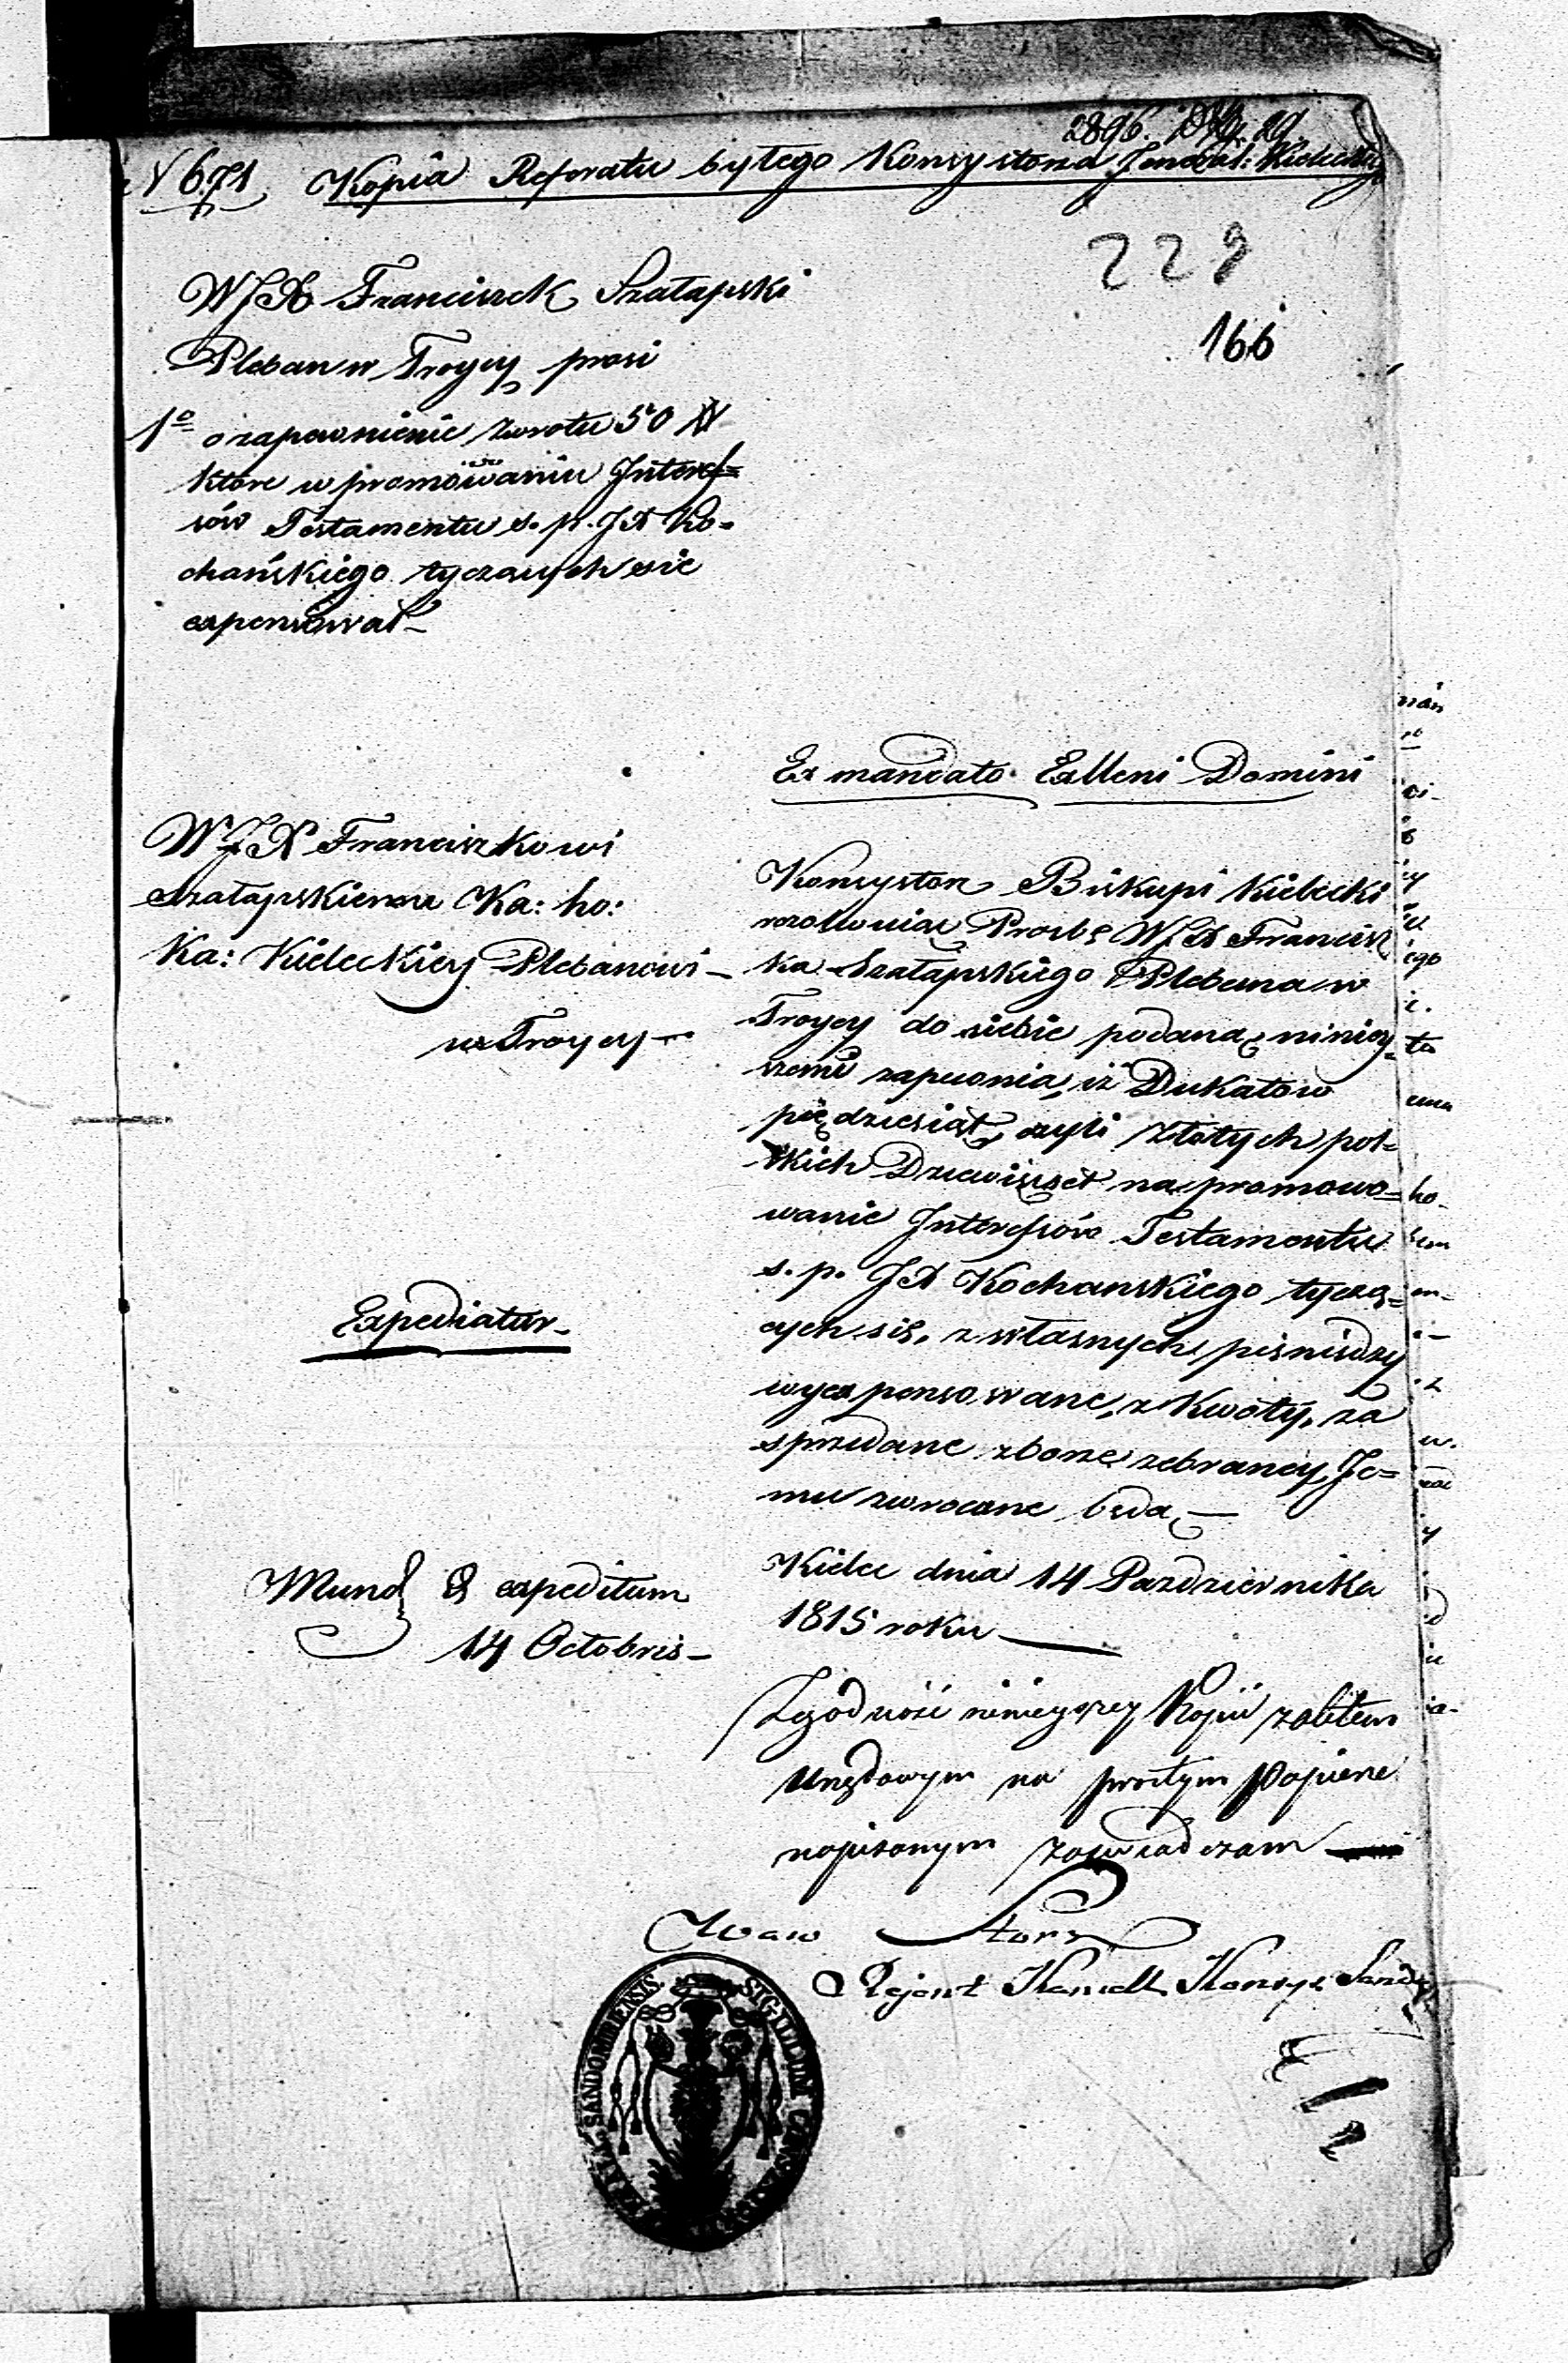 2896.
N 671 Kopia Referatu byłego Konsystorza Jeneral: Kieleckieg
229
166
WJX Franciszek Szałapski
Pleban w Troycy prosi
1º o zapewnienie zwrotu 50 #
ktore w promowaniu Interes=
sów Testamentu s. p. JX Ko=
chańskiego tyczących sie
expensował —
Ex mandato Exlleni Domini
WJX Franciszkowi
Szałapskiemu Ka: ho:
Ka: Kieleckiey Plebanowi —
w Troycy —
Konsystorz Biskupi Kielecki
rezolwuiąc Prosbę WJX Francisz
ka Szałapskiego Plebana w
Troycy do siebie podaną, niniey=
szemi zapewnia, iż Dukatow
pięcdziesiąt, czyli złotych pol=
skich Dziewięcset na promowo=
wanie Interessów Testamentu
s. p. JX Kochanskiego tyczą=
cych się, z własnych pieniędzy
wyexpensowane, z Kwoty, za
sprzedane zboże zebraney, Je=
mu zwrocone będą —
Expediatur —
Kielce dnia 14 Pazdziernika
1815 roku —
Mund & expeditum
14 Octobris —
Zgodność ninieyszey Kopii z aktem
Urzędowym na prostym Papierze
napisanym zaswiadczam —
Rejent Kancell Konsys Sand
SIGILLUM SANDOMIRIENSIS